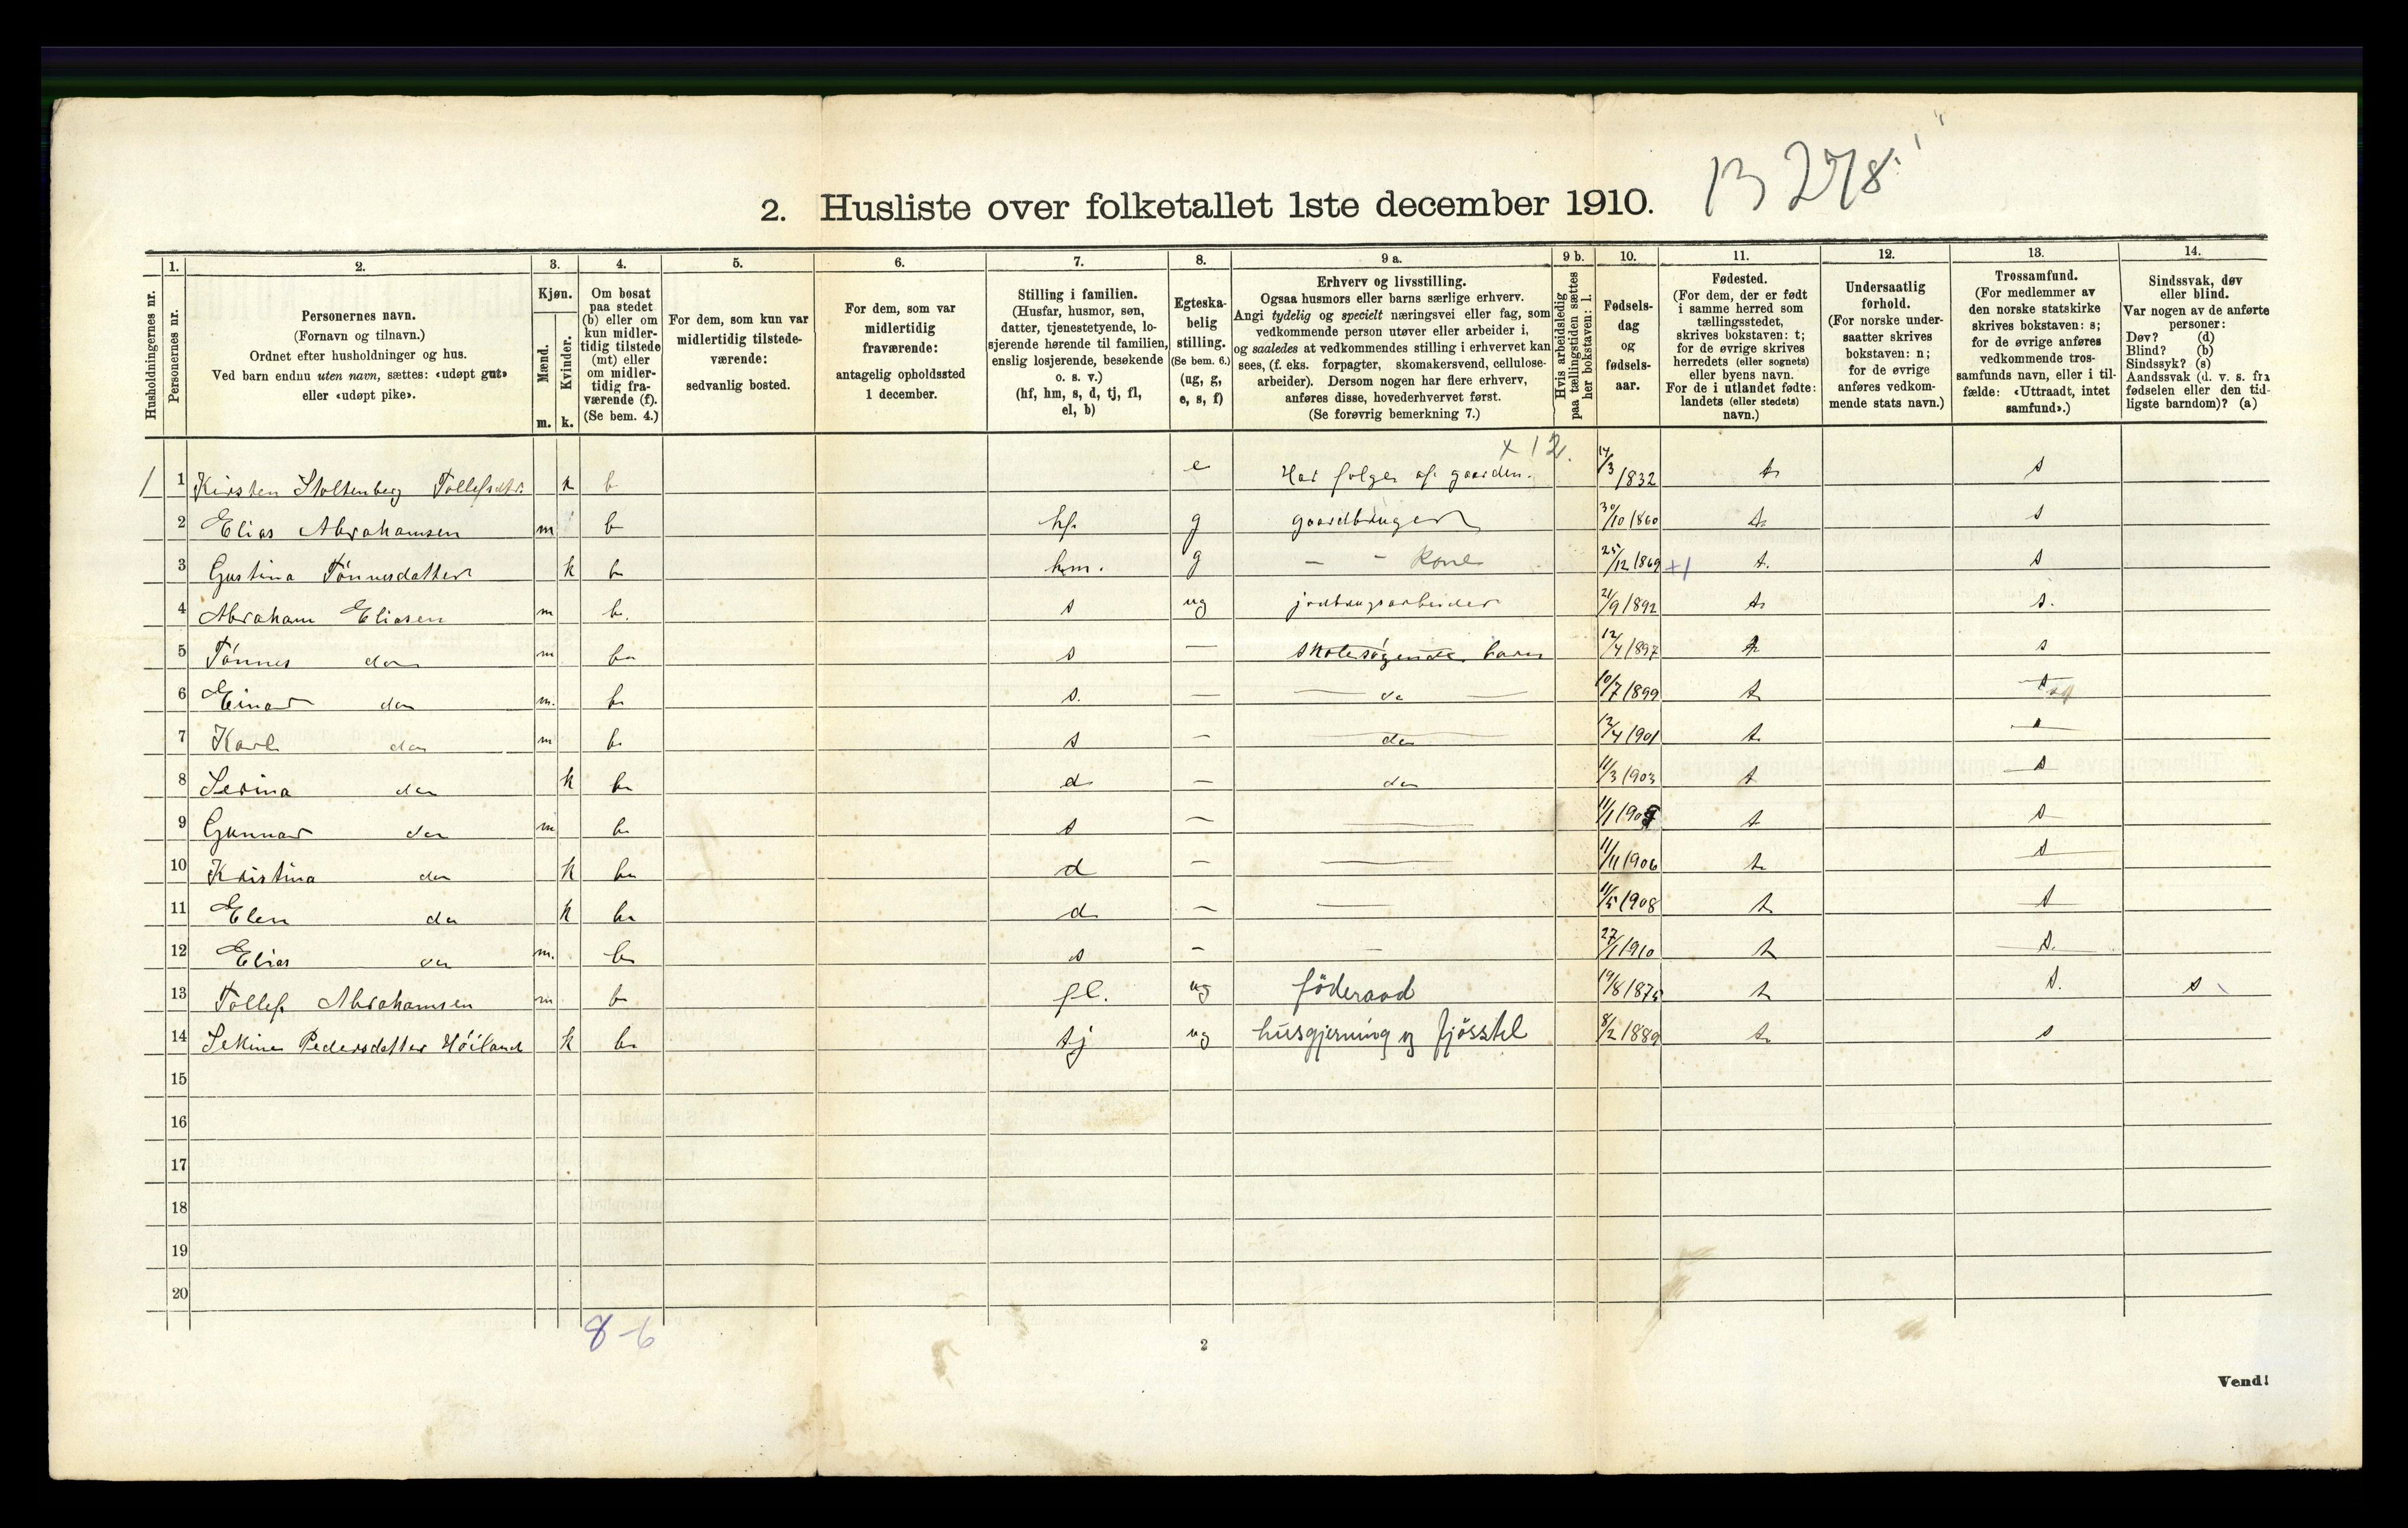 13 278
2. Husliste over folketallet 1ste december 1910.
Husholdningernes nr.
1. Personernes nr.
2. Personernes navn. (Fornavn og tilnavn.) Ordnet efter husholdninger og hus. Ved barn endnu uten navn, sættes: «udøpt gut» eller «udøpt pike».
3. Kjøn. Mænd. m. Kvinder. k.
4. Om bosat paa stedet (b) eller om kun midlertidig tilstede (mt) eller om midlertidig fraværende (f). (Se bem. 4.)
5. For dem, som kun var midlertidig tilstedeværende: sedvanlig bosted.
6. For dem, som var midlertidig fraværende: antagelig opholdssted 1 december.
7. Stilling i familien. (Husfar, husmor, søn, datter, tjenestetyende, losjerende hørende til familien, enslig losjerende, besøkende o. s. v.) (hf, hm, s, d, tj, fl, el, b)
8. Egteskabelig stilling. (Se bem. 6.) (ug, g, e, s, f)
9 a. Erhverv og livsstilling. Ogsaa husmors eller barns særlige erhverv. Angi tydelig og specielt næringsvei eller fag, som vedkommende person utøver eller arbeider i, og saaledes at vedkommendes stilling i erhvervet kan sees, (f. eks. forpagter, skomakersvend, cellulosearbeider). Dersom nogen har flere erhverv, anføres disse, hovederhvervet først. (Se forøvrig bemerkning 7.)
9 b. Hvis arbeidsledig paa tællingstiden sættes her bokstaven: l.
10. Fødselsdag og fødselsaar.
11. Fødested. (For dem, der er født i samme herred som tællingsstedet, skrives bokstaven: t; for de øvrige skrives herredets (eller sognets) eller byens navn. For de i utlandet fødte: landets (eller stedets) navn.)
12. Undersaatlig forhold. (For norske undersaatter skrives bokstaven: n; for de øvrige anføres vedkommende stats navn.)
13. Trossamfund. (For medlemmer av den norske statskirke skrives bokstaven: s; for de øvrige anføres vedkommende trossamfunds navn, eller i tilfælde: «Uttraadt, intet samfund».)
14. Sindssvak, døv eller blind. Var nogen av de anførte personer: Døv? (d) Blind? (b) Sindssyk? (s) Aandssvak (d. v. s. fra fødselen eller den tidligste barndom)? (a)
x 12.
1 1 Kirsten Stoltenberg Tollefsdtr. k b e Har folger af gaarden. 14/3 1832 t s
2 Elias Abrahamsen m b hf. g gaardbruger 30/10 1860 t s
3 Gustina Tönnesdatter k b hm. g — - kone 25/12 1869 +1 t. s
4 Abraham Eliasen m b. s ug jordbrugsarbeider 21/9 1892 t s.
5 Tönnes do m b s — skolesögende barn 12/4 1897 t s
6 Einar do m. b s. — do 10/7 1899 t s
7 Karl do m b s — do 12/4 1901 t. s
8 Serina do k b d — do 11/3 1903 t s
9 Gunnar do m b s — — 11/1 190 t s
10 Kristina do k b d — — 11/11 1906 t s
11 Elen do k b d — — 11/5 1908 t s
12 Elias do m. b s — — 27/1 1910 t s.
13 Tollef Abrahamsen m b fl. ug föderaad 19/8 1875 t s. s
14 Sekine Pedersdatter Höiland k b tj ug husgjerning og fjösstel 8/2 1889 t s
15
16
17
18
19
20
8-6
2
Vend!